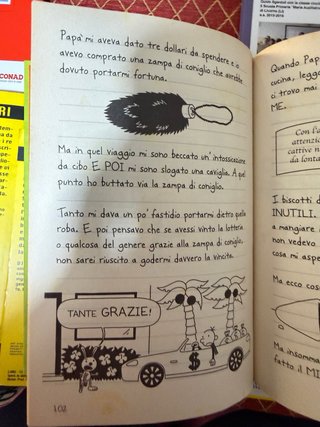 Papà mi aveva dato tre dollari da spendere e io
avevo comprato una zampa di coniglio che avrebbe
dovuto portarmi fortuna.
Ma in quel viaggio mi sono beccato un'intossicazione
da cibo E POI mi sono slogato una caviglia. A quel
punto ho buttato via la zampa di coniglio.
Tanto mi dava un po' fastidio portarmi dietro quella
roba. E poi pensavo che se avessi vinto la lotteria
o qualcosa del genere grazie alla zampa di coniglio,
non sarei riuscito a godermi davvero la vincita.
TANTE GRAZIE!
$ $
102
Quando Pap
cucina, legg
ci trovo mai
ME.
Con l'a
attenzio
cattive n
da lonta
I biscotti d
INUTILI.
a mangiare
non vedevo
cosa mi aspe
Ma ecco cos
Ma insomma
fatto il MI
CONAD
RI